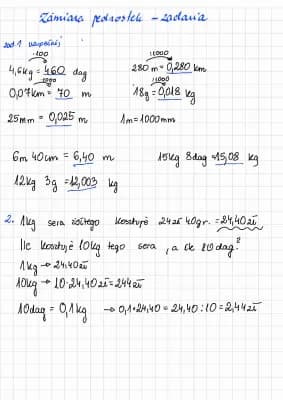 Zamiana jednostek - zadania
zad.1 uzupełnij
·100 :1000
4,6kg = 460 dag 280 m = 0,280 km
·1000 :1000
0,07km = 70 m 18g = 0,018 kg
25mm = 0,025 m 1m = 1000mm
6m 40cm = 6,40 m 15kg 8dag = 15,08 kg
12kg 3g = 12,003 kg
2. 1kg sera żółtego kosztuje 24zł 40gr. = 24,40zł
Ile kosztuje 10kg tego sera, a ile 10dag?
1kg → 24,40zł
10kg → 10·24,40zł = 244zł
10dag = 0,1kg → 0,1·24,40 = 24,40:10 = 2,44zł